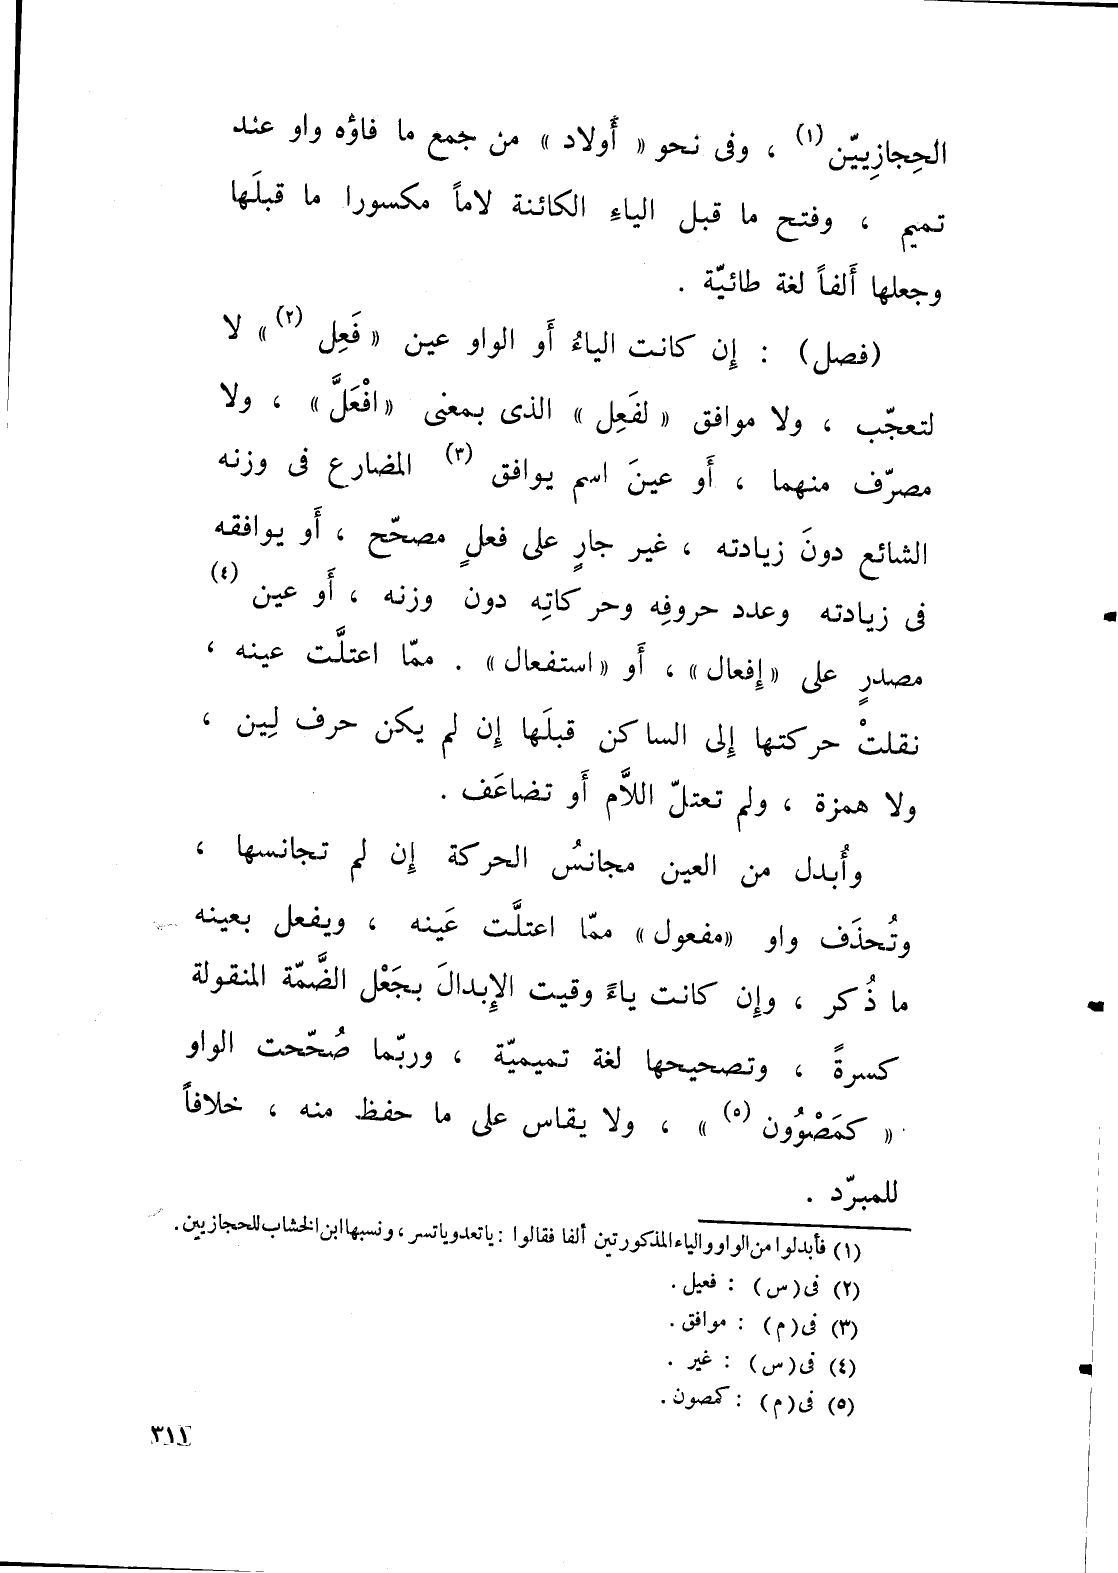 الحِجازِييّن (١) ، وفى نحو « أَولاد » من جمع ما فاؤه واو عند
تميم ، وفتح ما قبل الياءِ الكائنة لاماً مكسورا ما قبلَها
وجعلها أَلفاً لغة طائيّة .
(فصل) : إِن كانت الياءُ أَو الواو عين « فَعِل (٢) » لا
لتعجّب ، ولا موافق « لفَعِل » الذى بمعنى «افْعَلَّ» ، ولا
مصرّف منهما ، أَو عينَ اسم يوافق (٣) المضارع فى وزنه
الشائع دونَ زيادته ، غير جارٍ على فعلٍ مصحّح ، أَو يوافقه
فى زيادته وعدد حروفِه وحركاتِه دون وزنه ، أَو عين (٤)
مصدرٍ على «إِفعال» ، أَو «استفعال» . ممّا اعتلَّت عينه ،
نقلتْ حركتها إِلى الساكن قبلَها إِن لم يكن حرف لِين ،
ولا همزة ، ولم تعتلّ اللاَّم أَو تضاعَف .
وأُبدل من العين مجانسُ الحركة إِن لم تجانسها ،
وتُحذَف واو «مفعول» ممّا اعتلَّت عَينه ، ويفعل بعينه
ما ذُكر ، وإِن كانت ياءً وقيت الإِبدالَ بجَعْل الضَّمّة المنقولة
كسرةً ، وتصحيحها لغة تميميّة ، وربّما صُحّحت الواو
« كمَصْوُون (٥) » ، ولا يقاس على ما حفظ منه ، خلافاً
للمبرّد .
(١) فأبدلوا من الواو والياء المذكورتين ألفا فقالوا : ياتعد وياتسر ، ونسبها ابن الخشاب للحجازيين .
(٢) فى (س) : فعيل .
(٣) فى (م) : موافق .
(٤) فى (س) : غير .
(٥) فى (م) : كمصون .
٣١١